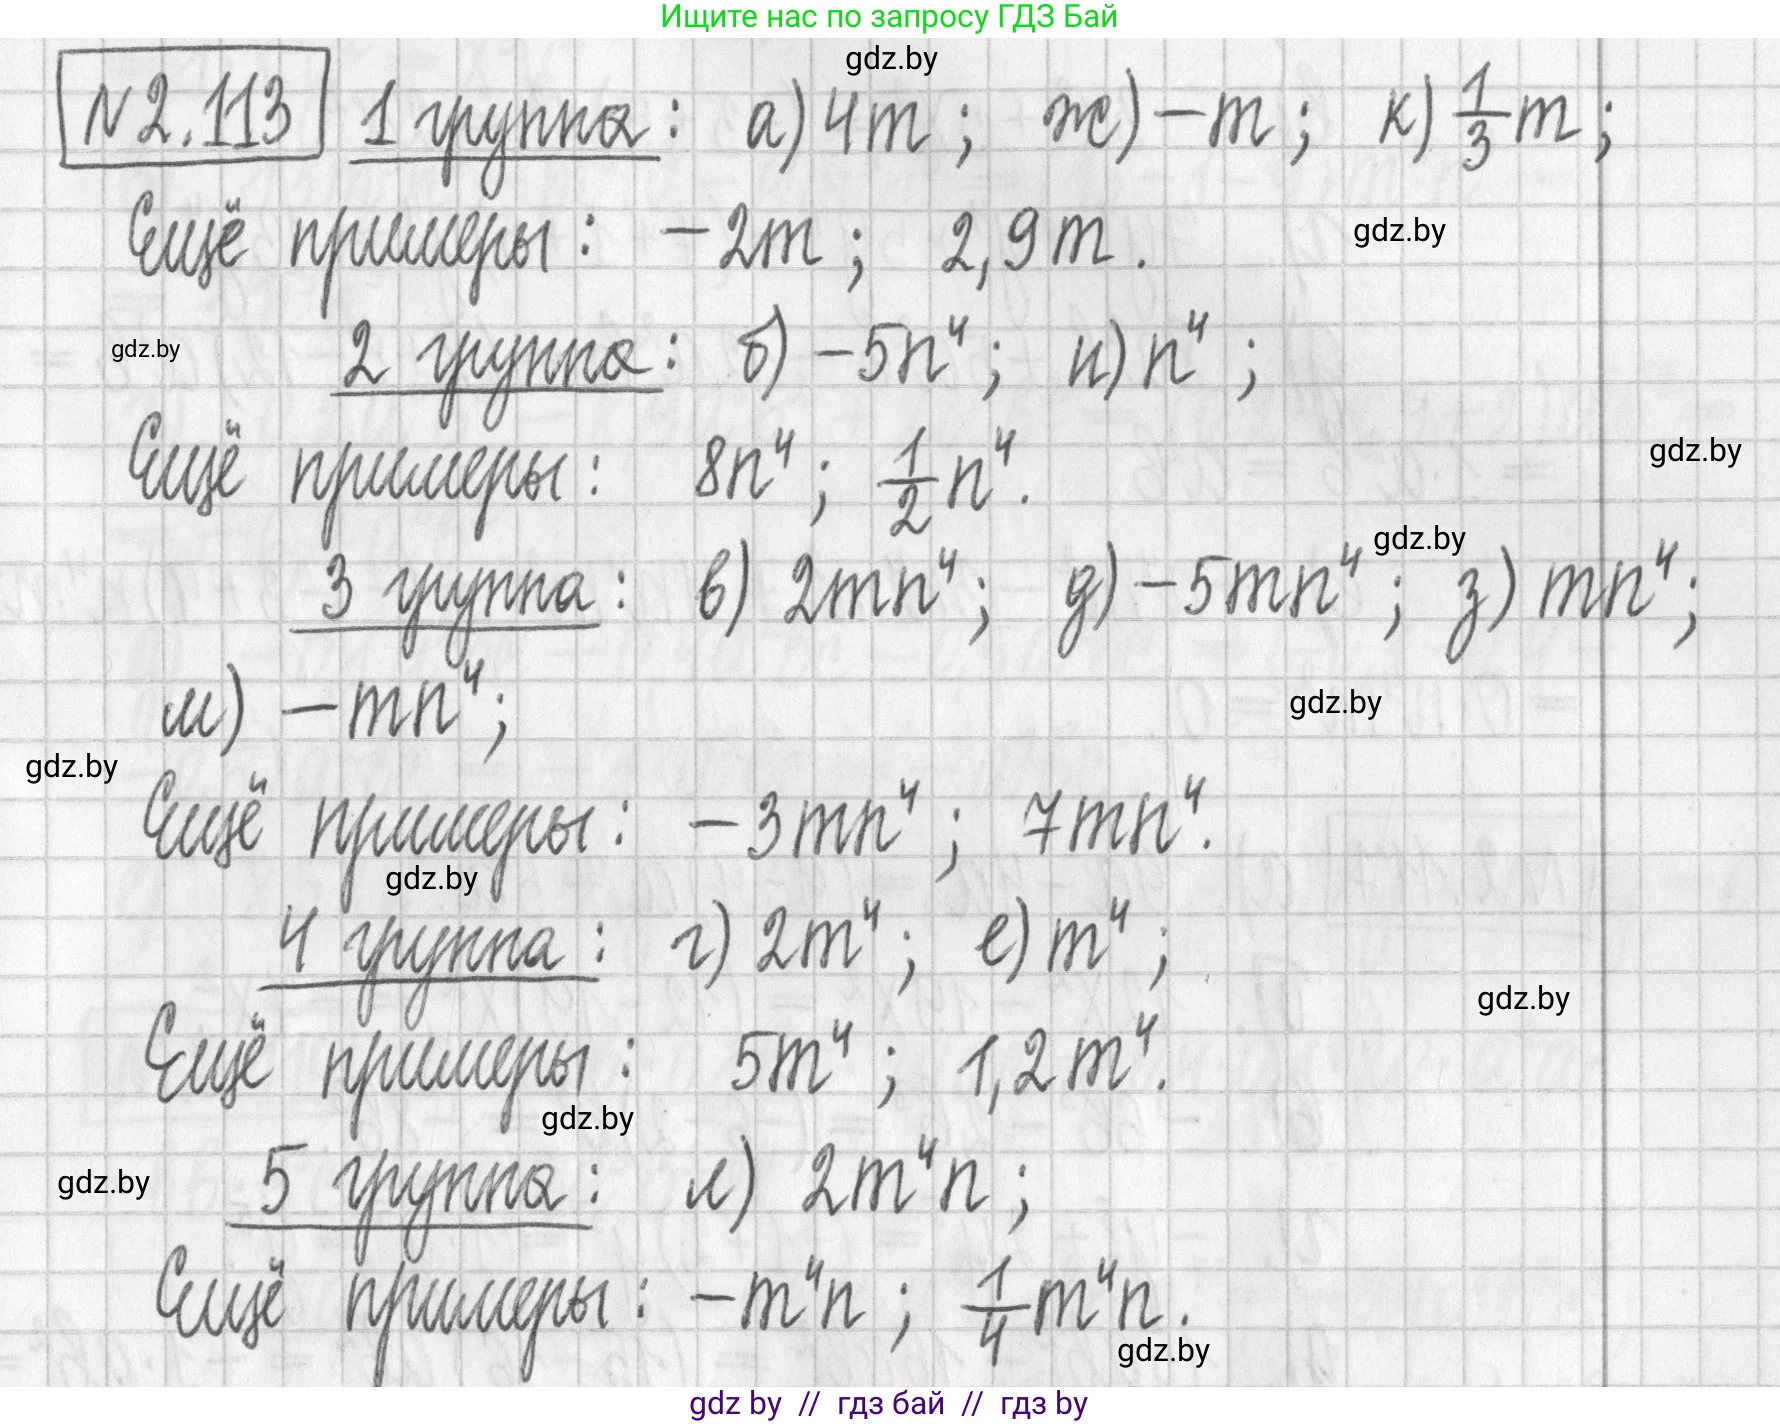 Ищите нас по запросу ГДЗ Бай
gdz.by
N2.113 1 группа: а) 4m; ж) -m; к) 1/3 m;
Ещё примеры: -2m; 2,9m.
gdz.by
2 группа: б) -5n⁴; и) n⁴;
gdz.by
Ещё примеры: 8n⁴; 1/2 n⁴.
gdz.by
gdz.by
3 группа: в) 2mn⁴; д) -5mn⁴; з) mn⁴;
м) -mn⁴;
gdz.by
gdz.by
Ещё примеры: -3mn⁴; 7mn⁴.
gdz.by
4 группа: г) 2m⁴; е) m⁴;
gdz.by
Ещё примеры: 5m⁴; 1,2m⁴.
gdz.by
5 группа: л) 2m⁴n;
gdz.by
Ещё примеры: -m⁴n; 1/4 m⁴n.
gdz.by
gdz by // гдз бай // гдз by